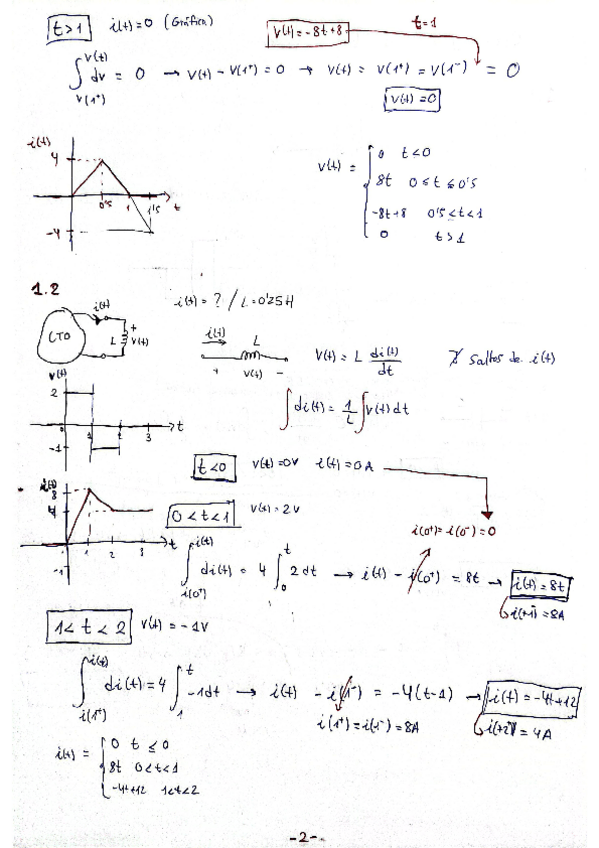 t>1 i(t)=0 (Gráfica) V(t)=-8t+8 t=1
∫_{V(1⁺)}^{V(t)} dv = 0 → V(t) - V(1⁺) = 0 → V(t) = V(1⁺) = V(1⁻) = 0
V(t)=0
i(t)
4
0'5 1 1'5 t
-4
V(t) = { 0 t<0
8t 0≤t≤0'5
-8t+8 0'5<t<1
0 t>1
1.2
i(t) = ? / L=0'25H
CTO i(t) L + V(t)
i(t) L + V(t) -
V(t) = L di(t)/dt ∄ Saltos de i(t)
∫di(t) = 1/L ∫V(t)dt
V(t)
2
0 1 2 3 t
-1
t<0 V(t)=0V i(t)=0A
i(0⁺)=i(0⁻)=0
i(t)
8
4
0 1 2 3 t
-1
0<t<1 V(t)=2V
∫_{i(0⁺)}^{i(t)} di(t) = 4 ∫_0^t 2dt → i(t) - i(0⁺) = 8t → i(t)=8t
i(1)=8A
1<t<2 V(t)=-1V
∫_{i(1⁺)}^{i(t)} di(t)=4 ∫_1^t -1dt → i(t) - i(1⁻) = -4(t-1) → i(t)=-4t+12
i(1⁺)=i(1⁻)=8A
i(2)=4A
i(t) = { 0 t≤0
8t 0<t<1
-4t+12 1<t<2
-2-